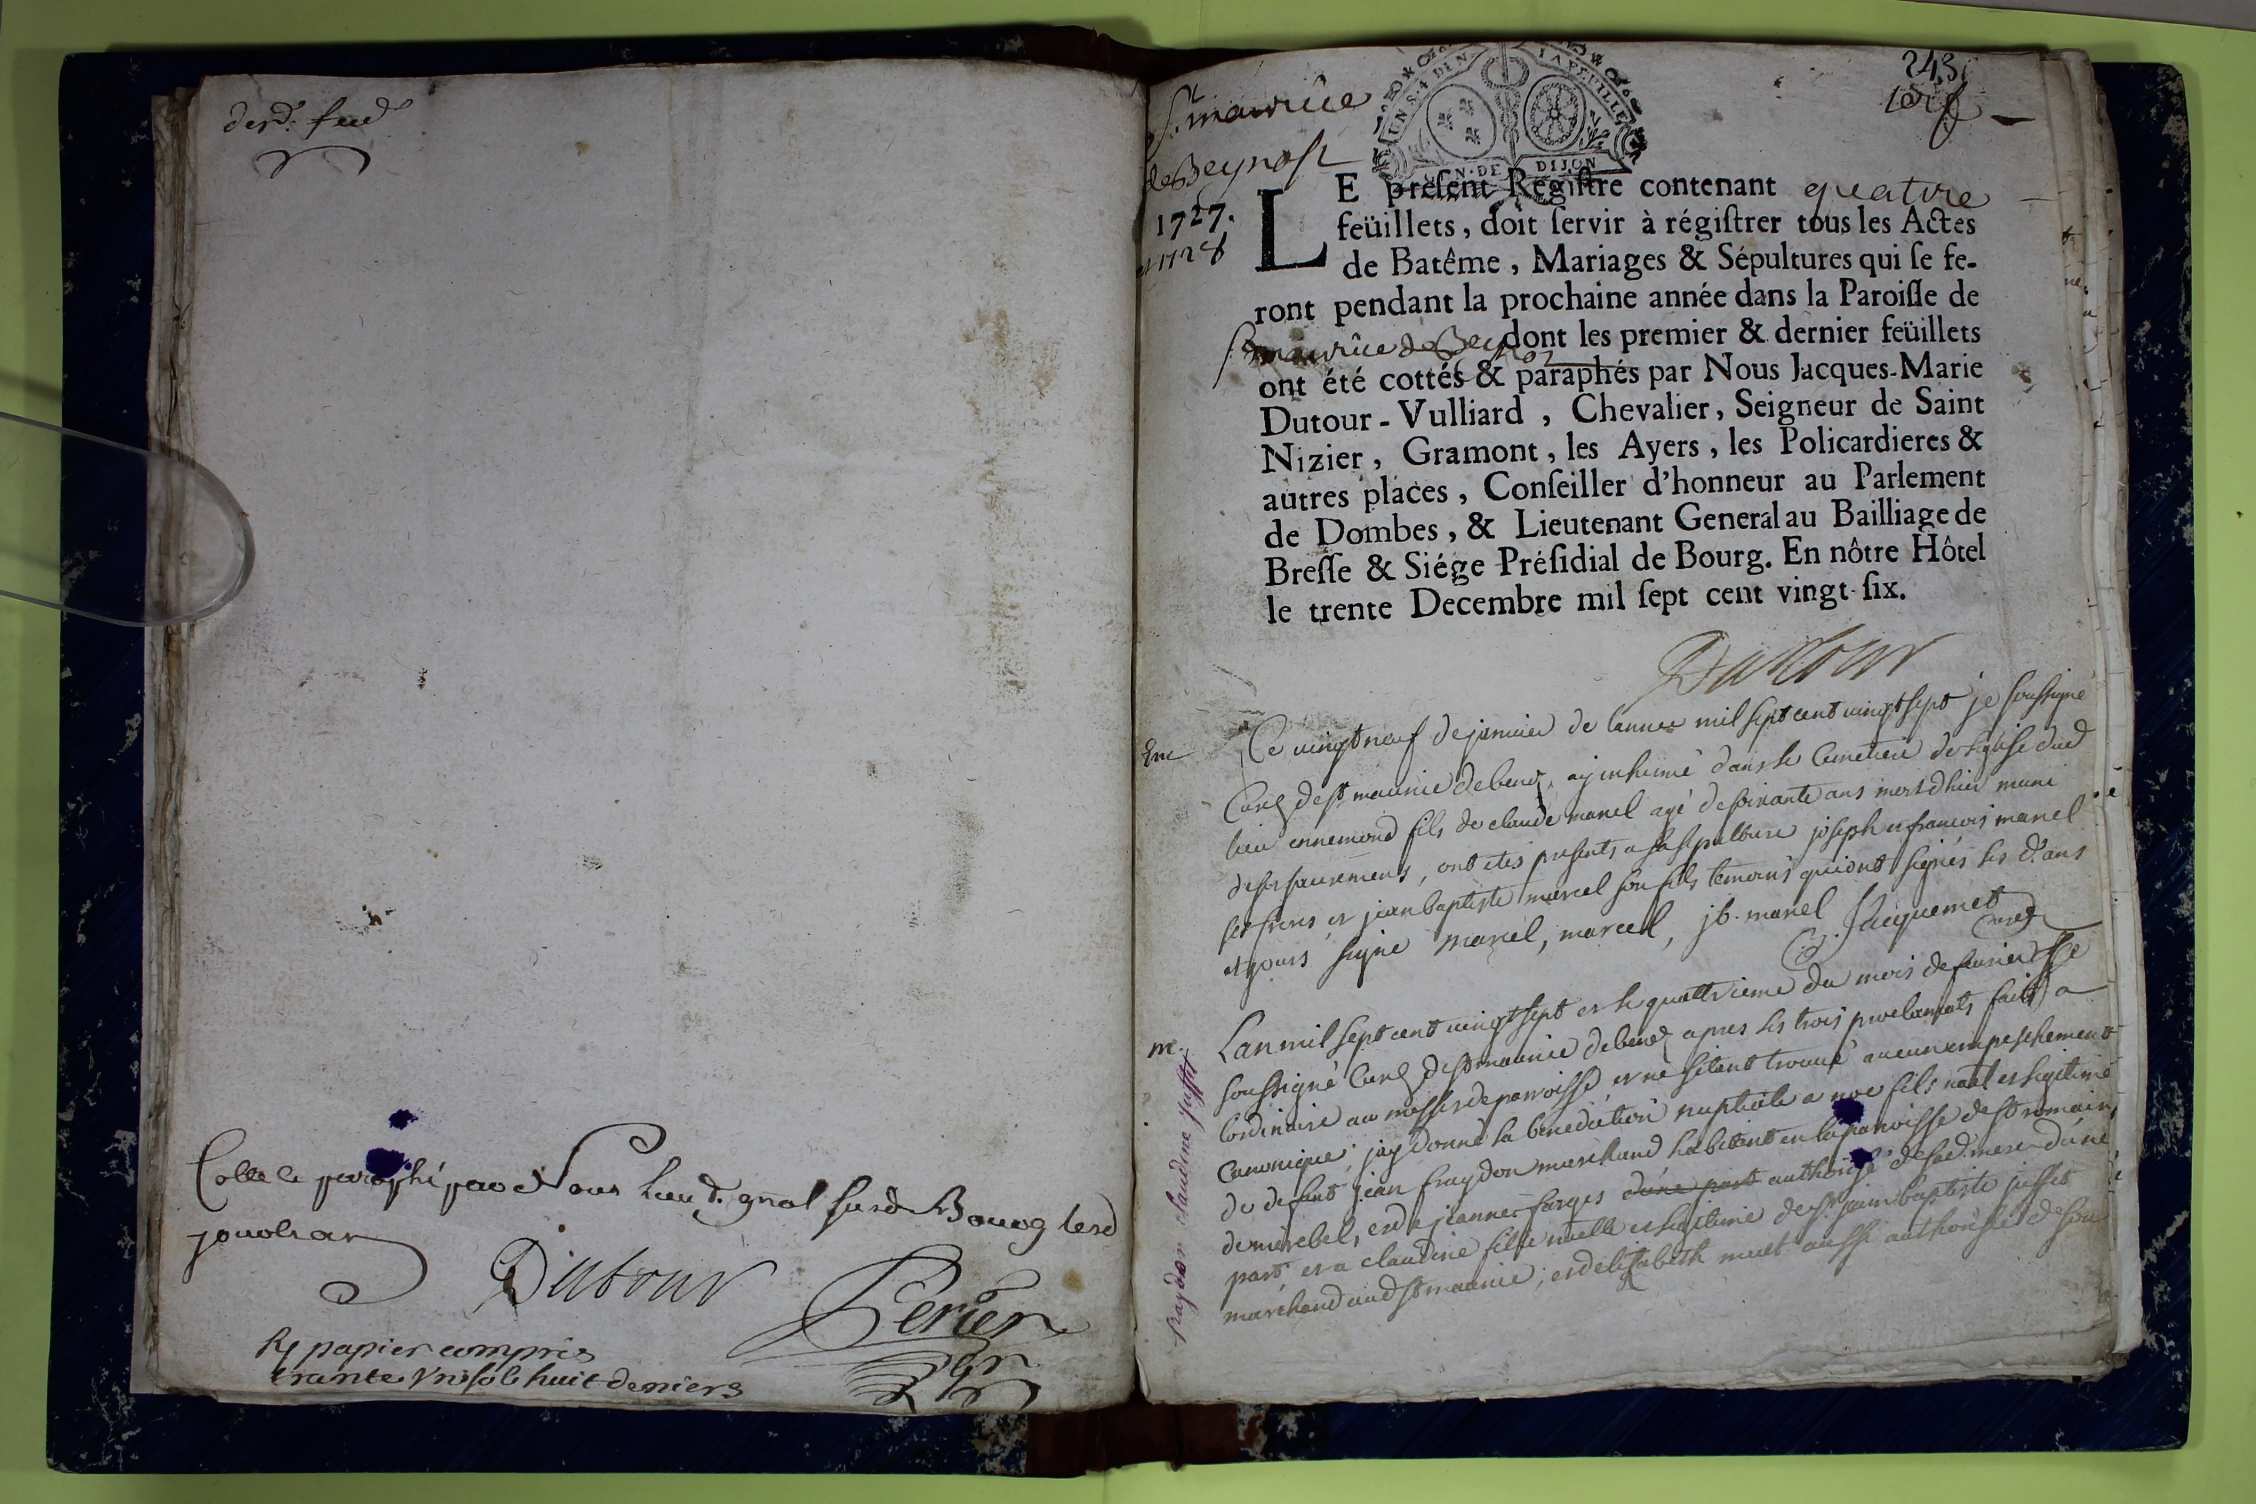 Cotté et paraphé par Nous Lieut. gnal susd. Bourg lesd
jour et an
Dutour
Perier
papier compris
trante un sols huit deniers
243
St. maurice
de Beynost
1727.
et 1728
UN S. 4 DEN. LA FEUILLE
GEN. DE DIJON
LE présent Régistre contenant quatre
feüillets, doit servir à régistrer tous les Actes
de Batême, Mariages & Sépultures qui se fe-
ront pendant la prochaine année dans la Paroisse de
St. maurice de Beynost dont les premier & dernier feüillets
ont été cottés & paraphés par Nous Jacques-Marie
Dutour-Vulliard, Chevalier, Seigneur de Saint
Nizier, Gramont, les Ayers, les Policardieres &
autres places, Conseiller d'honneur au Parlement
de Dombes, & Lieutenant General au Bailliage de
Bresse & Siége Présidial de Bourg. En nôtre Hôtel
le trente Decembre mil sept cent vingt-six.
Dutour
Ce vingt neuf de janvier de lannee mil sept cent vingt sept je soussigné
Curé de st maurice de benot, ay inhumé dans le Cemetiere de leglise dud
lieu ennemond fils de claude marcel agé de soixante ans mort dhier muni
de ses sacremens, ont etés presents a sa sepulture joseph et francois marcel
ses freres et jean baptiste marcel son fils temoins qui ont signés les d. ans
et jours signe marcel, marcel, jb. marcel Jacquemet
curé
m.
Lan mil sept cent vingt sept et le quattrieme du mois de fevrier je
soussigné Curé de st maurice de benot apres les trois proclamats faits a
lordinaire au messes de paroisse, et ne setant trouvé aucun empeschement
canonique, jay donné la benediction nuptiale a noe fils natl et legitime
de defunt jean fraydon marchand habitant en la paroisse de st romain
de mirebel, et de jeanne farges d'une part authorisé de sad. mere d'une
part, et a claudine fille natlle et legitime de sr. jean baptiste juffet
marchand aud st maurice, et de elisabeth muet aussi authorisée de son
fraydon claudine juffet